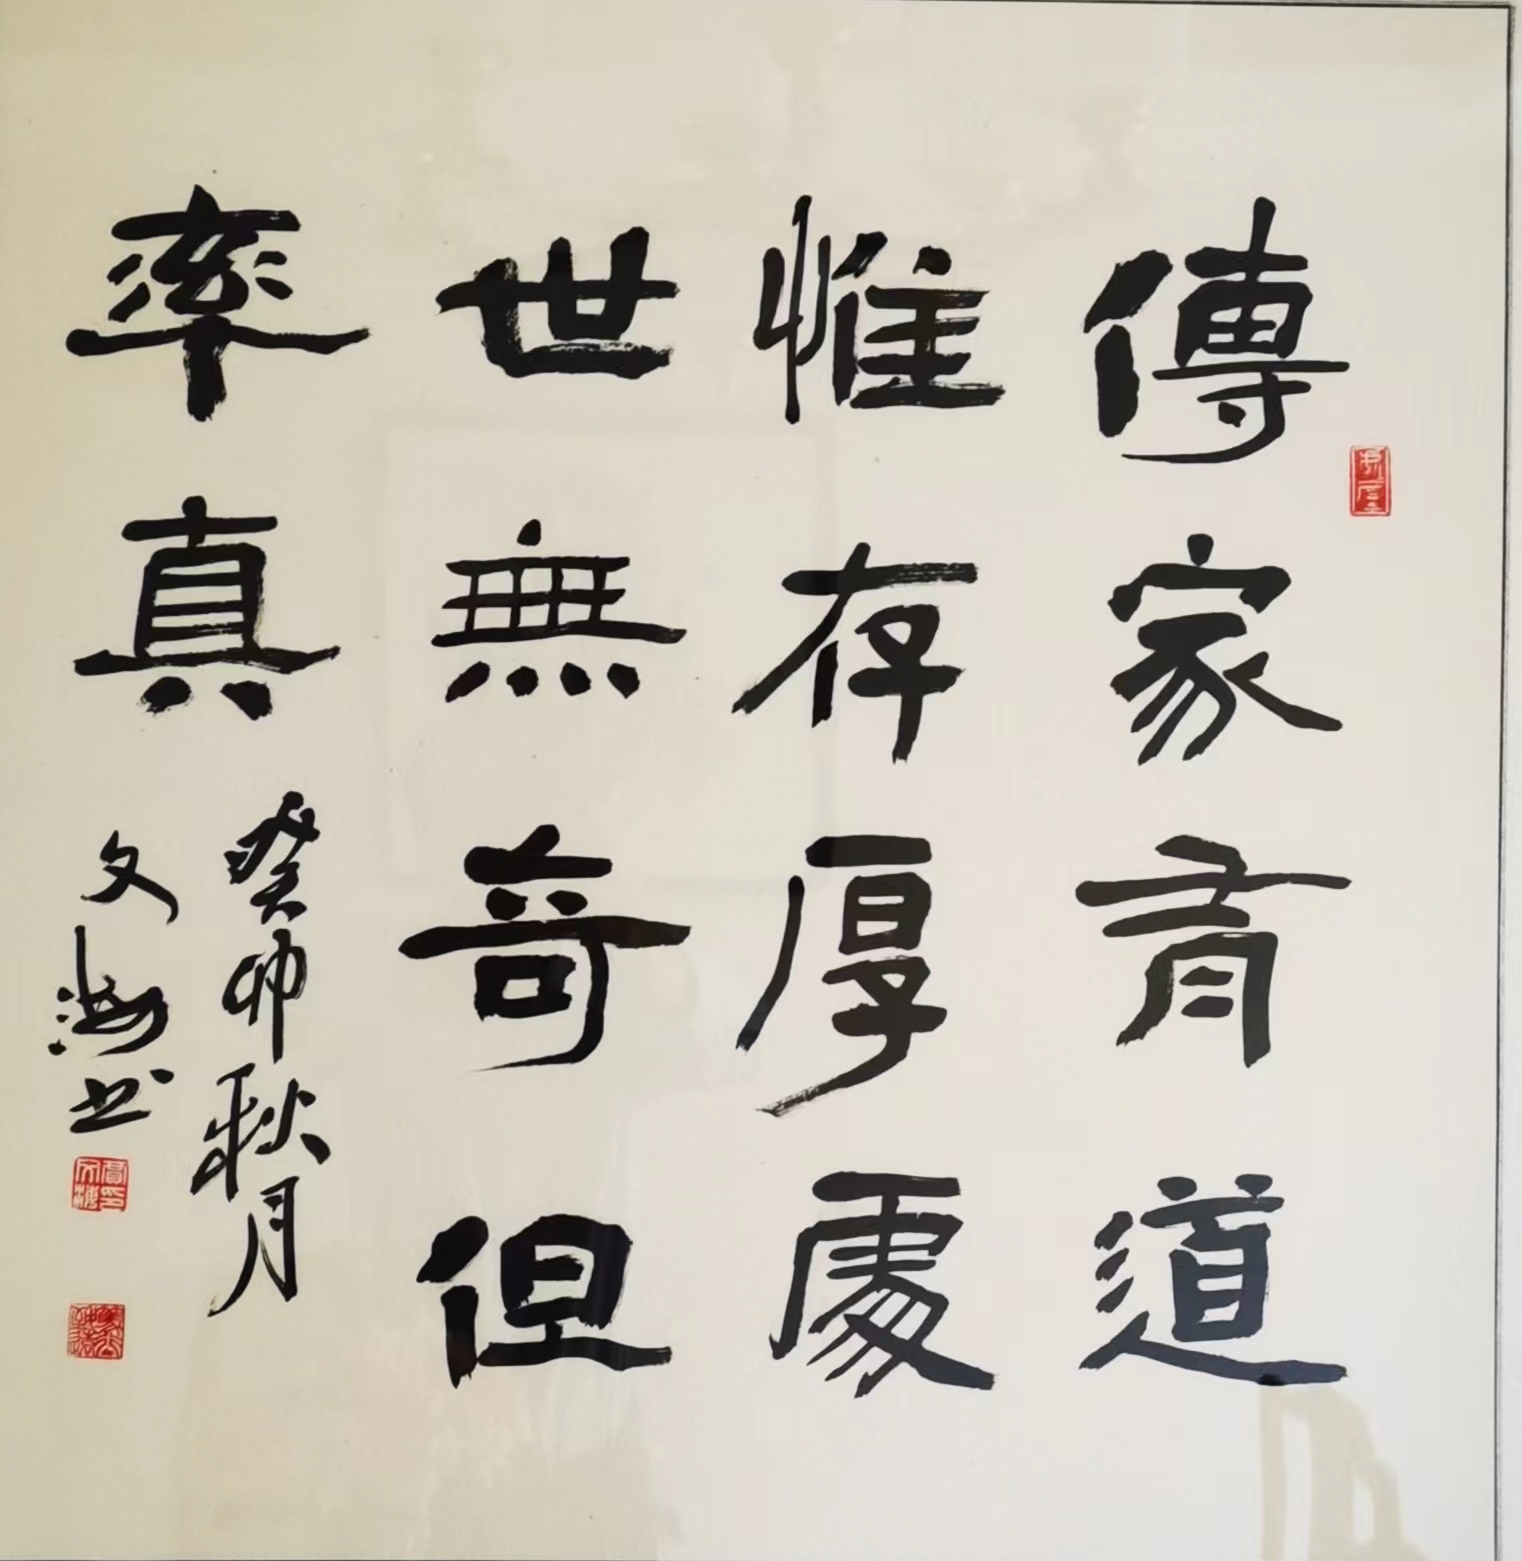 傳家有道
惟存厚處
世無奇但
率真
癸卯秋月
文海书